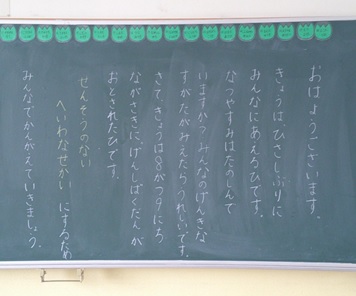 おはようございます。
きょうは、ひさしぶりに
みんなにあえるひです。
なつやすみはたのしんで
いますか？みんなのげんきな
すがたがみえたらうれしいです。
さて、きょうは8がつ9にち
ながさきに、げんしばくだんが
おとされたひです。
せんそうのない
へいわなせかい にするため
みんなでかんがえていきましょう。